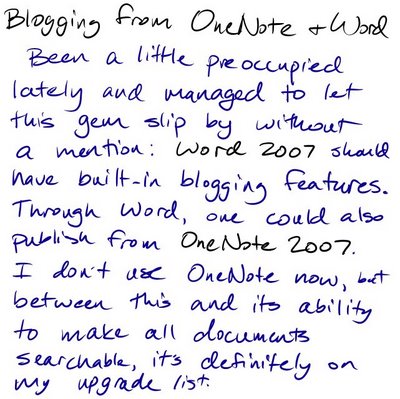 Blogging from OneNote + Word
Been a little preoccupied
lately and managed to let
this gem slip by without
a mention: Word 2007 should
have built-in blogging features.
Through Word, one could also
publish from OneNote 2007.
I don't use OneNote now, but
between this and its ability
to make all documents
searchable, it's definitely on
my upgrade list.